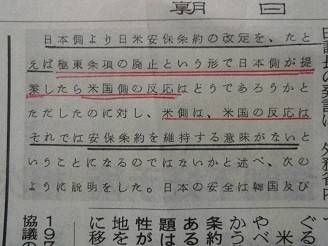 朝日
日本側より日米安保条約の改定を、たと
えば極東条項の廃止という形で日本側が提
案したら米国側の反応はどうであろうかと
ただしたのに対し、米側は、米国の反応は
それでは安保条約を維持する意味がないと
いうことになるのではないかと述べ、次の
ように説明した。日本の安全は韓国及び
ぐる
、米
やべ
かう
条約
ある
題は
性が
地を
に移
197
協議の